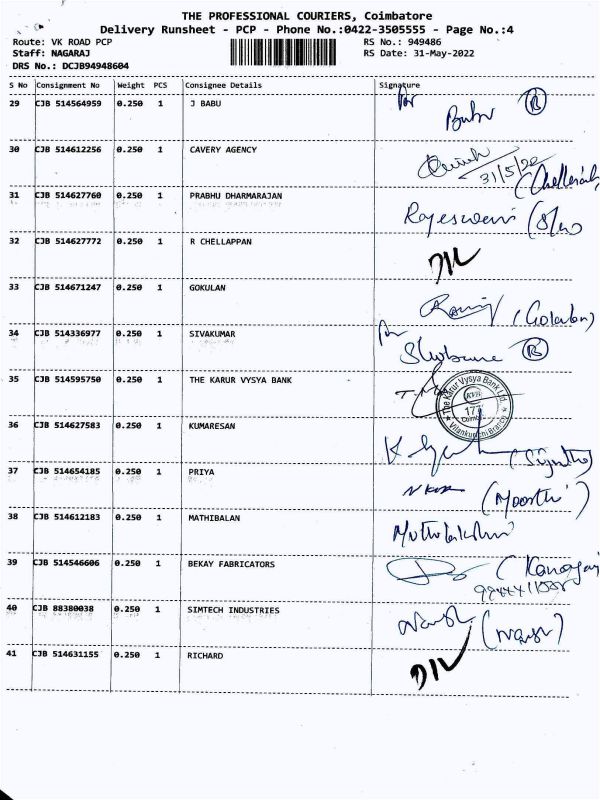 THE PROFESSIONAL COURIERS, Coimbatore
Delivery Runsheet - PCP - Phone No.:0422-3505555 - Page No.:4
Route: VK ROAD PCP RS No.: 949486
Staff: NAGARAJ RS Date: 31-May-2022
DRS No.: DCJB94948604
S No Consignment No Weight PCS Consignee Details Signature
29 CJB 514564959 0.250 1 J BABU Babu B
30 CJB 514612256 0.250 1 CAVERY AGENCY
31/5/22
31 CJB 514627760 0.250 1 PRABHU DHARMARAJAN Rajeswari
32 CJB 514627772 0.250 1 R CHELLAPPAN D/L
33 CJB 514671247 0.250 1 GOKULAN
34 CJB 514336977 0.250 1 SIVAKUMAR B
35 CJB 514595750 0.250 1 THE KARUR VYSYA BANK The Karur Vysya Bank Ltd.
36 CJB 514627583 0.250 1 KUMARESAN
37 CJB 514654185 0.250 1 PRIYA (Moorthi)
38 CJB 514612183 0.250 1 MATHIBALAN Muthulakshmi
39 CJB 514546606 0.250 1 BEKAY FABRICATORS
40 CJB 88380038 0.250 1 SIMTECH INDUSTRIES
41 CJB 514631155 0.250 1 RICHARD D/L